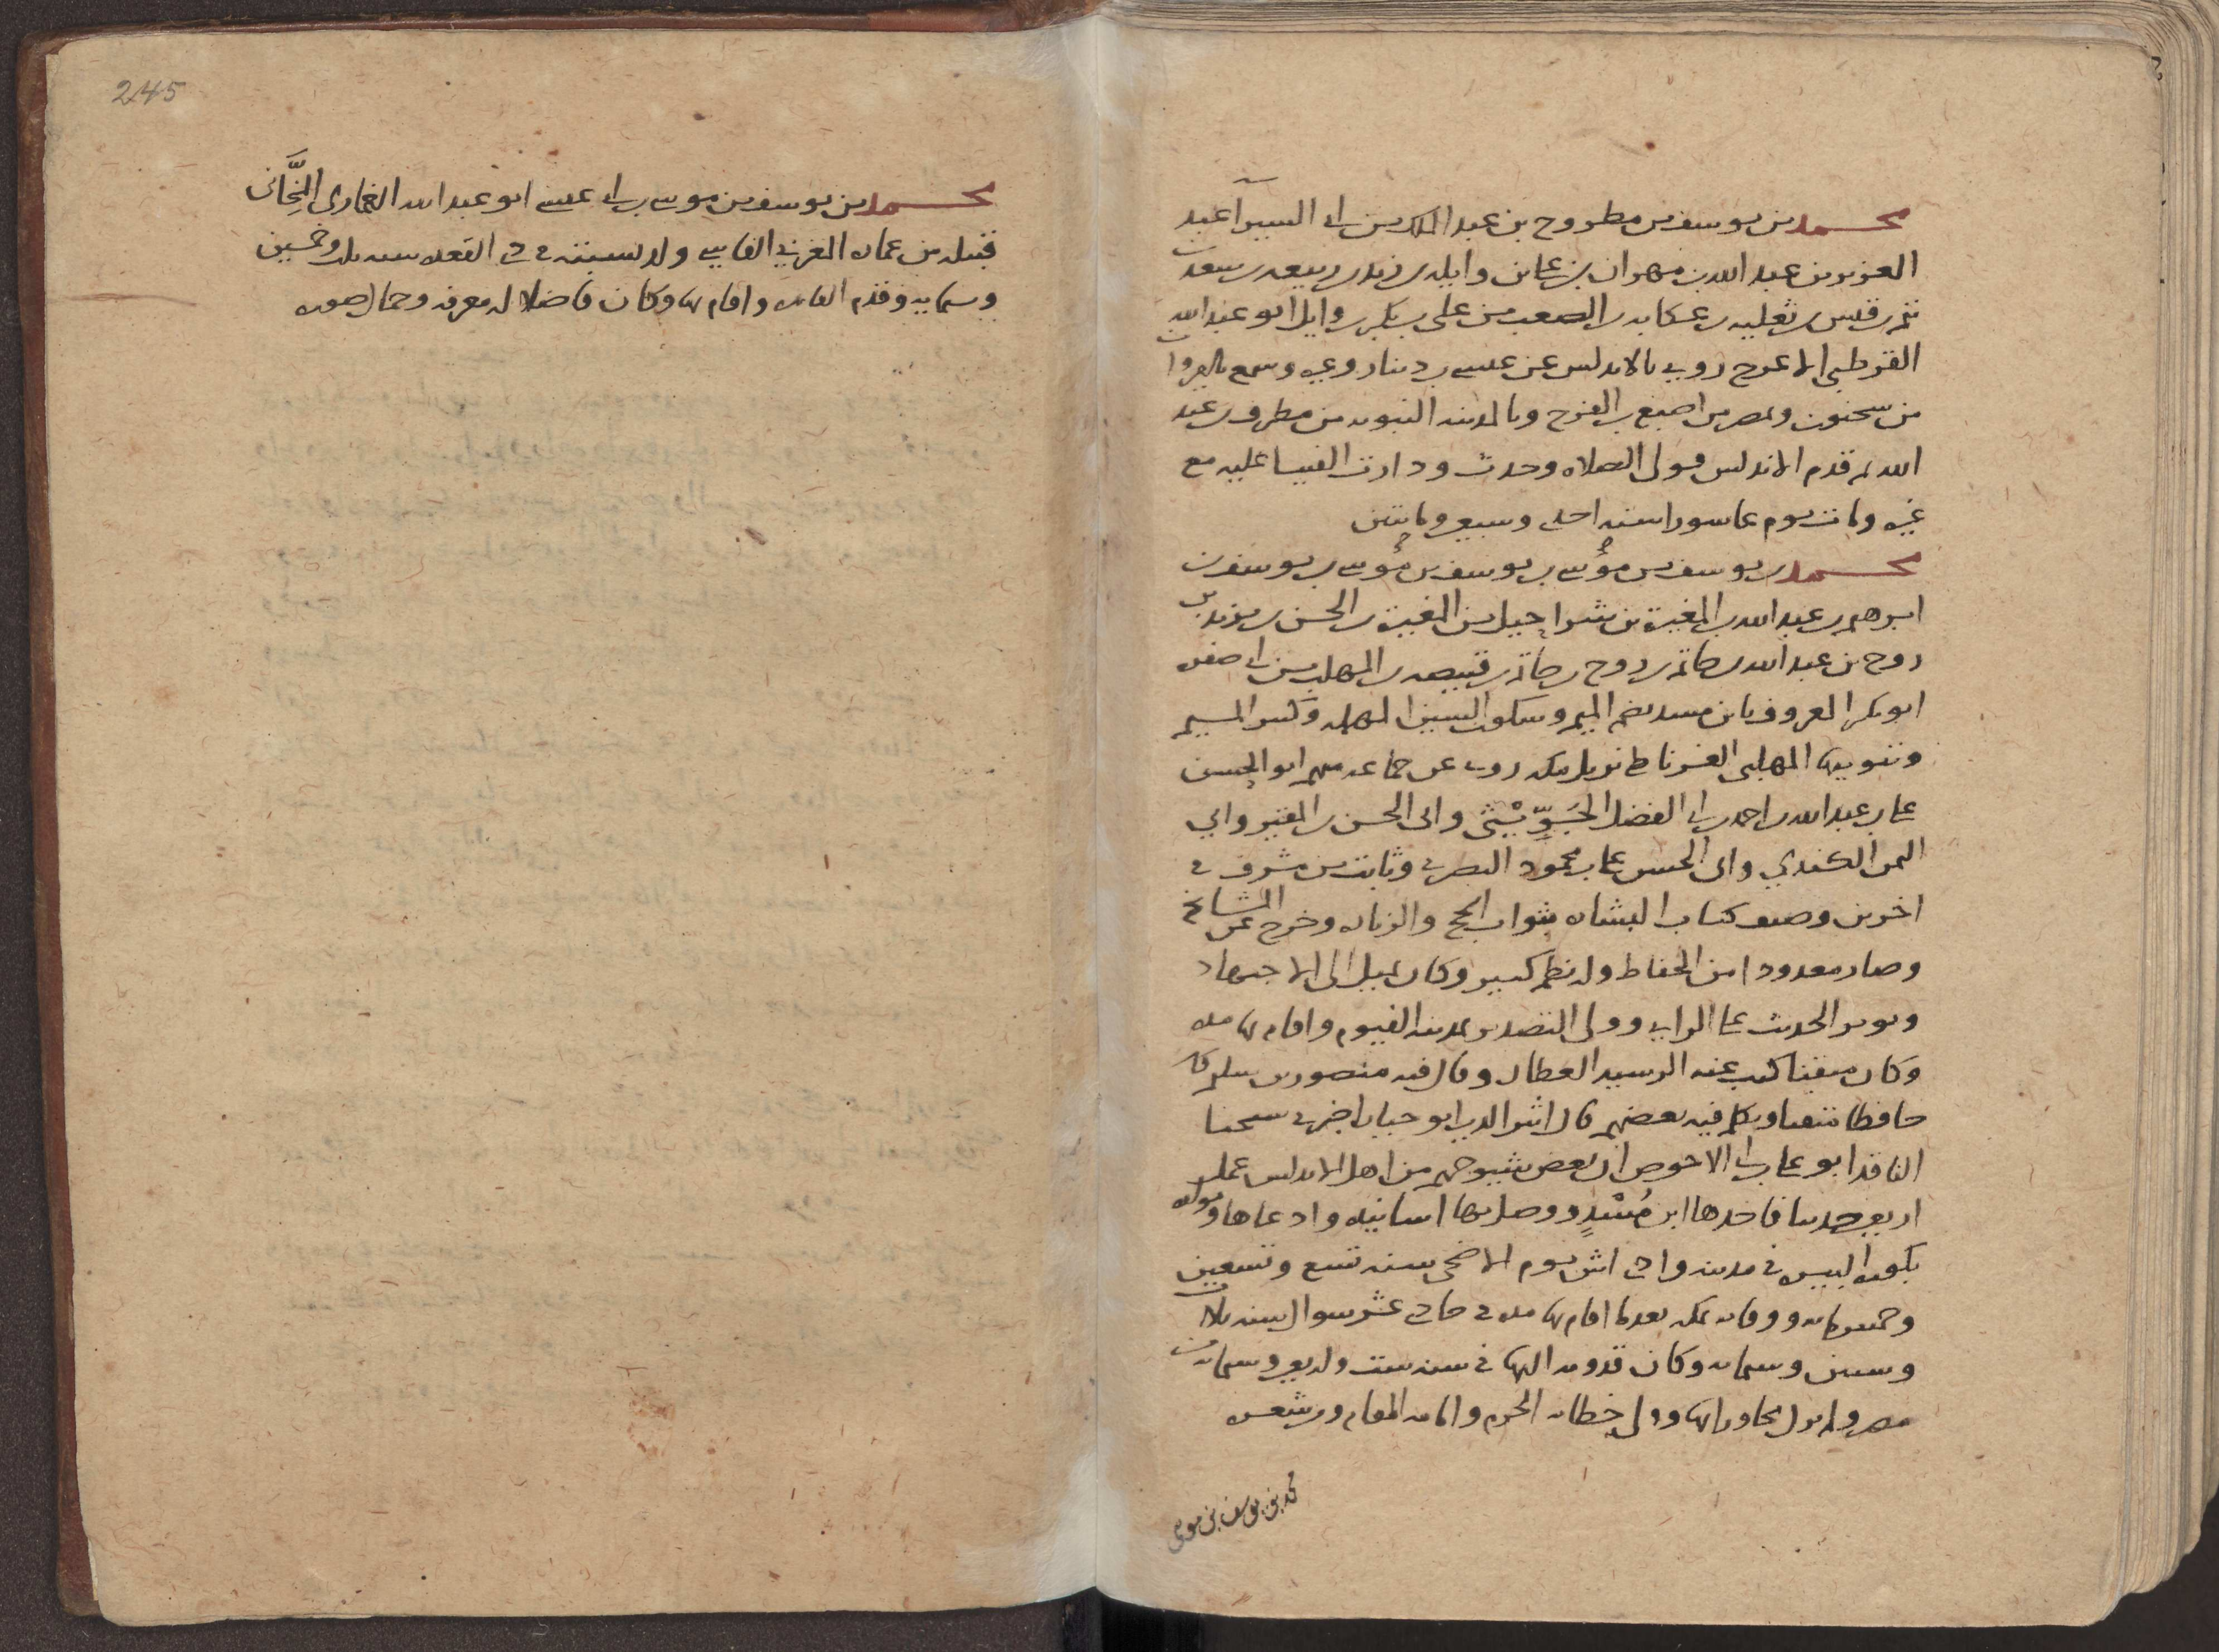 محمد بن يوسف بن مطروح بن عبد الملك بن ابى السير اعبد
العزيز بن عبد الله بن مهران بن عاىن وايلد بن زيد بن ربيعه بن سعد بن
تيم بن قيس بن ثعلبه بن عكابه بن الصعب بن على بن بكر بن وايل ابو عبد الله
القرطبى الاعرج روى بالاندلس عن عيسى بن دينار وغيره وسمع بالقيروان
من سحنون وبمصر من اصبغ بن الفرج وبالمدينه النبويه من مطرف بن عبد
الله ثم قدم الاندلس فولى الصلاه وحدث ودارت الفتيا عليه مع
غيره ومات يوم عاشورا سنه احدى وسبعين ومايتين
محمد بن يوسف بن موسى بن يوسف بن موسى بن يوسف بن
ابرهيم بن عبد الله بن المغيرة بن شراحيل بن المغيرة بن الحسن بن يزيد بن
روح بن عبد الله بن حاتم بن روح بن حاتم بن قبيصه بن المهلب بن ابى صفره
ابو بكر المعروف بابن مسد بضم الميم وسكون السين المهمله وكسر الميم
وتنوينها المهلبى الغرناطى نزيل مكه روى عن جماعه منهم ابو الحسن
على بن عبد الله بن احمد بن ابى الفضل الجَوِّيْثى وابى الحسن بن المقير وابي
اليمن الكندي وابى الحسن على بن محمود البصرى وثابت بن مشرف فى
اخرين وصنف كتاب البشاره بثواب الحج والزياره وخرج عن المشايخ
وصار معدودا من الحفاظ وله نظم كثير وكان يميل الى الاجتهاد
ويوثر الحديث على الراى وولى التصدير بمدينه الفيوم واقام بها مده
وكان متفننا كتب عنه الرشيد العطار وقال فيه منصور بن سليم كان
حافظا متقنا وتكلم فيه بعضهم قال اثير الدين ابو حيان اخبرنى شيخنا
الناقد ابو على بن ابى الاحوص ان بعض شيوخهم من اهل الاندلس عمل
اربعين حديثا فاخذها ابن مُسْدٍ ووصل بها اسانيده وادعاها ومولده
بكوره البيره فى مدينه وادى اش يوم الاضحى سنه تسع وتسعين
وخمسمايه ووفاته بمكه بعدما اقام بها مده فى حادى عشر شوال سنه ثلاث
وستين وستمايه وكان قدومه اليها فى سنه ست واربعين وستمايه من
مصر ولم يزل مجاورا بها وولى خطابه الحرم وامامه المقام ومن شعره
محمد بن يوسف بن موسى
245
محمد بن يوسف بن موسى بن ابى عيسى ابو عبد الله الغمارى النِّجَّانى
قبيله من غماره المغربى الفاسى ولد بسبته فى ذى القعده سنه ثلاث وخمسين
وستمايه وقدم القاهره واقام بها وكان فاضلا له معرفه وجمال صوره